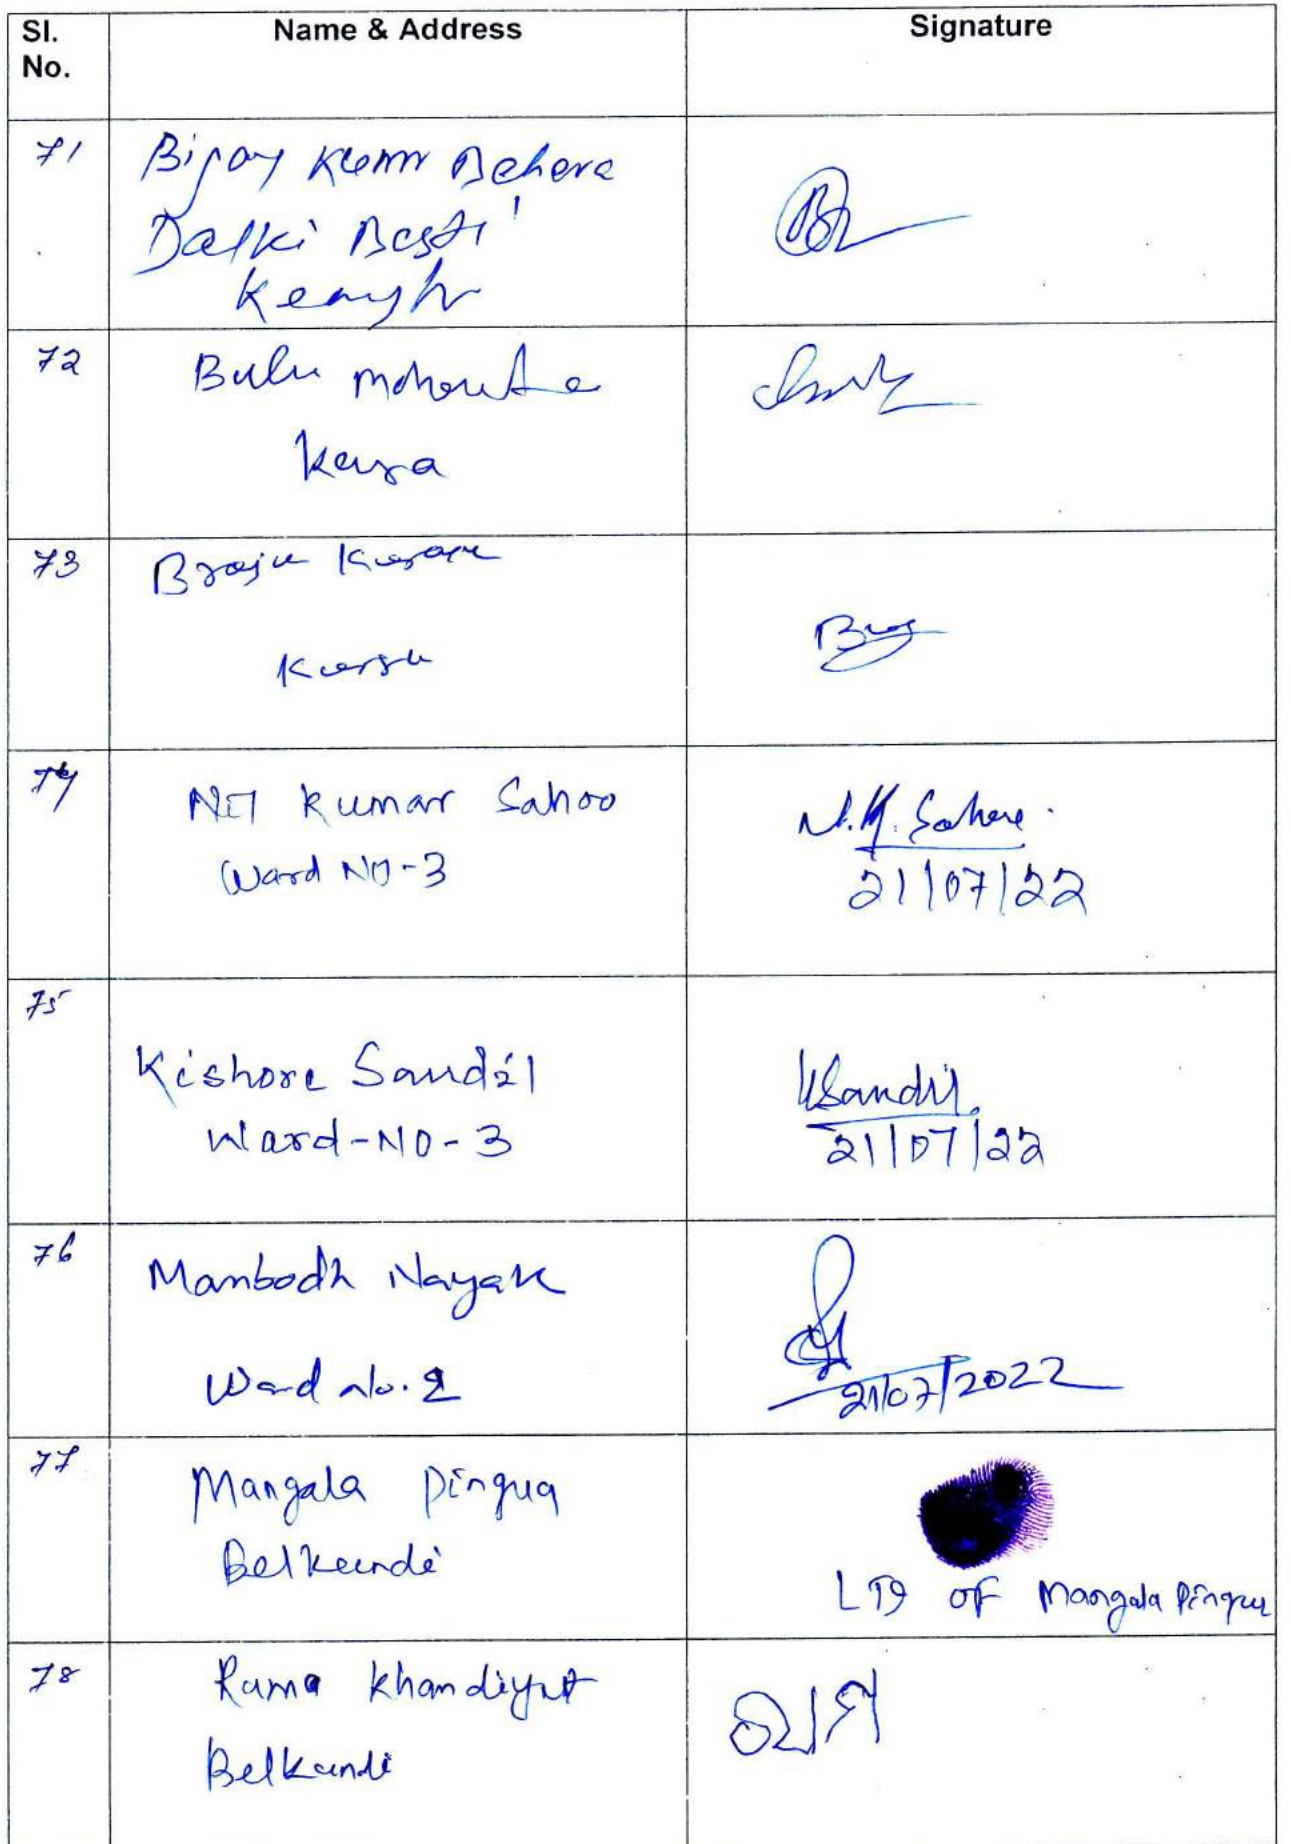 Sl. No.
Name & Address
Signature
71
Bijay Kumr Behera
Dalki Basti
72
Bulu Mohanta
73
Braju
74
Kumar Sahoo
Ward NO-3
N.K. Sahoo
21/07/22
75
Kishore Sandil
Ward-NO-3
KSandil
21/07/22
76
Manbodh Nayak
Ward No. 2
21/07/2022
77
Mangala Pingua
Belkundi
LTI OF Mangala Pingua
78
Rama Khandiyat
Belkundi